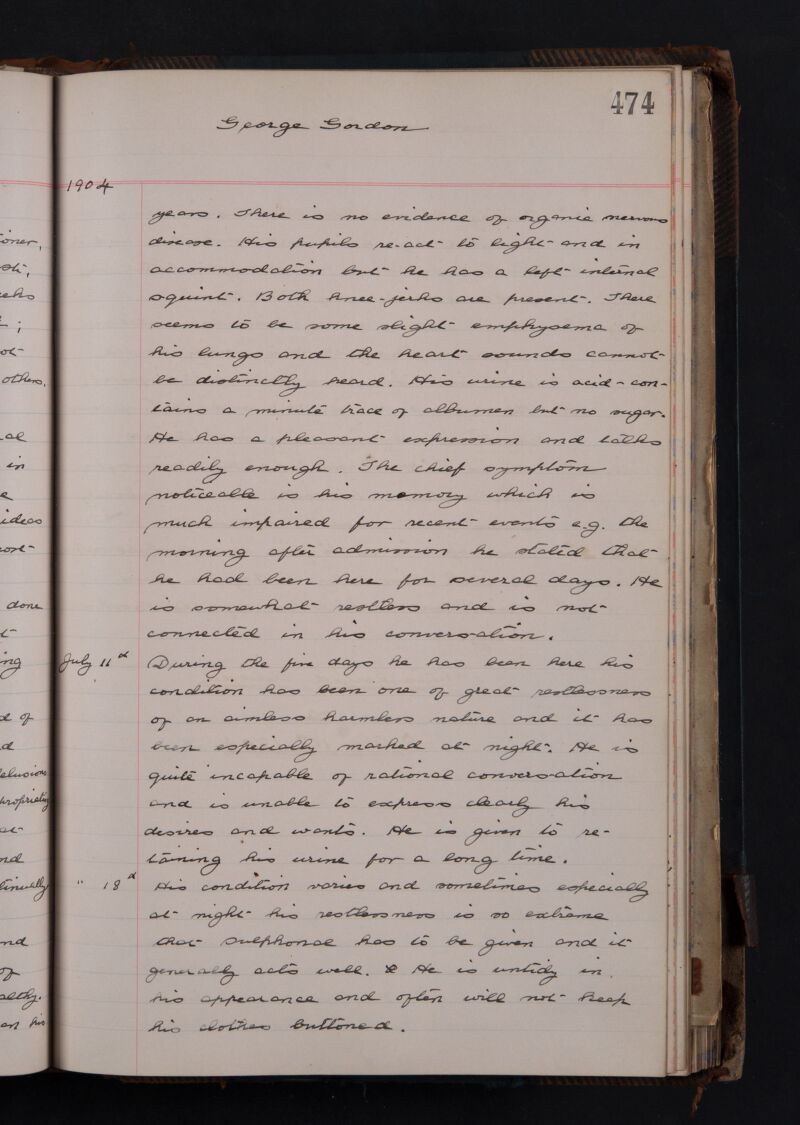 oner,
sti,
- ;
ot
others,
al
in
e
ideas
done
t
ing
d of
d
elusions
propriety
at
nd
tinually
nd
of
althy.
an his
474
George Gordon
1904
years. There is no evidence of organic nervous
disease. His pupils re-act to light and in
accommodation but he has a left internal
squint. Both knee-jerks are present. There
seems to be some slight emphysema of
his lungs and the heart sounds cannot
be distinctly heard. His urine is acid - con-
tains a minute trace of albumen but no sugar.
He has a pleasant expression and talks
readily enough. The chief symptom
noticeable is his memory which is
much impaired for recent events e.g. the
morning after admission he stated that
he had been here for several days. He
is somewhat restless and is not
connected in his conversation.
July 11th During the five days he has been here his
condition has been one of great restlessness
of an aimless harmless nature and it has
been especially marked at night. He is
quite incapable of rational conversation
and is unable to express clearly his
desires and wants. He is given to re-
taining his urine for a long time.
" 18th His condition varies and sometimes especially
at night his restlessness is so extreme
that sulphonal has to be given and it
generally acts well. He is untidy in
his appearance and often will not keep
his clothes buttoned.